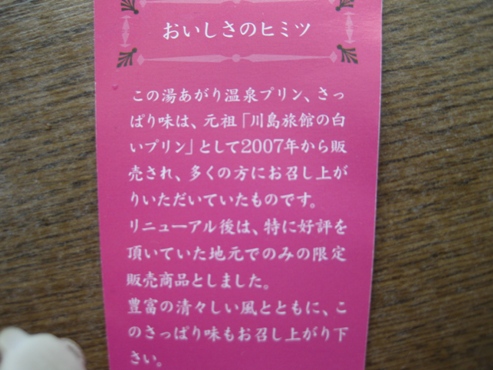 おいしさのヒミツ
この湯あがり温泉プリン、さっ
ぱり味は、元祖「川島旅館の白
いプリン」として2007年から販
売され、多くの方にお召し上が
りいただいていたものです。
リニューアル後は、特に好評を
頂いていた地元でのみの限定
販売商品としました。
豊富の清々しい風とともに、こ
のさっぱり味もお召し上がり下
さい。